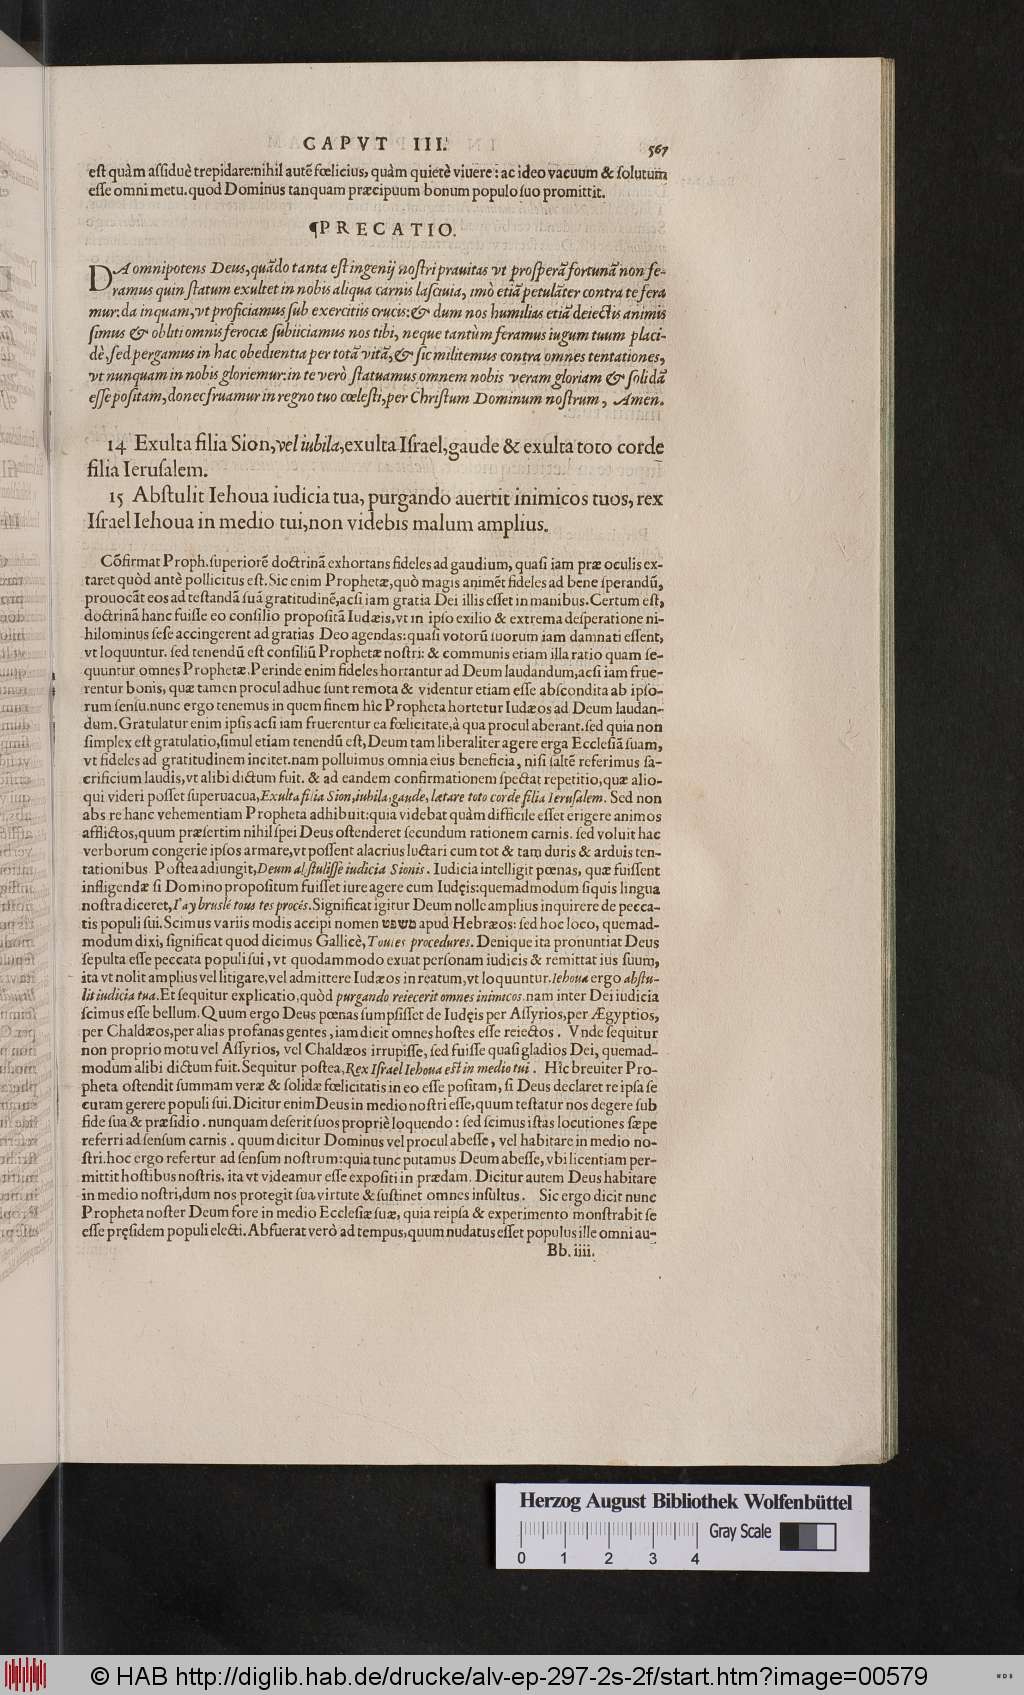 CAPVT III. 567
est quàm assiduè trepidare: nihil autẽ fœlicius, quàm quietè viuere: ac ideo vacuum & solutum
esse omni metu. quod Dominus tanquam præcipuum bonum populo suo promittit.
¶PRECATIO.
DA omnipotens Deus, quãdo tanta est ingenij nostri prauitas vt prosperã fortunã non fe-
ramus quin statum exultet in nobis aliqua carnis lasciuia, imò etiã petulãter contra te fera
mur: da inquam, vt proficiamus sub exercitiis crucis: & dum nos humilias etiã deiectis animis
simus & obliti omnis ferociæ subiiciamus nos tibi, neque tantùm feramus iugum tuum placi-
dè, sed pergamus in hac obedientia per totã vitã, & sic militemus contra omnes tentationes,
vt nunquam in nobis gloriemur: in te verò statuamus omnem nobis veram gloriam & solidã
esse positam, donec fruamur in regno tuo cœlesti, per Christum Dominum nostrum, Amen.
14 Exulta filia Sion, vel iubila, exulta Israel, gaude & exulta toto corde
filia Ierusalem.
15 Abstulit Iehoua iudicia tua, purgando auertit inimicos tuos, rex
Israel Iehoua in medio tui, non videbis malum amplius.
Cõfirmat Proph. superiorẽ doctrinã exhortans fideles ad gaudium, quasi iam præ oculis ex-
taret quòd antè pollicitus est. Sic enim Prophetæ, quò magis animẽt fideles ad bene sperandũ,
prouocãt eos ad testandã suã gratitudinẽ, acsi iam gratia Dei illis esset in manibus. Certum est,
doctrinã hanc fuisse eo consilio propositã Iudæis, vt in ipso exilio & extrema desperatione ni-
hilominus sese accingerent ad gratias Deo agendas: quasi votorũ suorum iam damnati essent,
vt loquuntur. sed tenendũ est consiliũ Prophetæ nostri: & communis etiam illa ratio quam se-
quuntur omnes Prophetæ. Perinde enim fideles hortantur ad Deum laudandum, acsi iam frue-
rentur bonis, quæ tamen procul adhuc sunt remota & videntur etiam esse abscondita ab ipso-
rum sensu. nunc ergo tenemus in quem finem hîc Propheta hortetur Iudæos ad Deum laudan-
dum. Gratulatur enim ipsis acsi iam fruerentur ea fœlicitate, à qua procul aberant. sed quia non
simplex est gratulatio, simul etiam tenendũ est, Deum tam liberaliter agere erga Ecclesiã suam,
vt fideles ad gratitudinem incitet. nam polluimus omnia eius beneficia, nisi saltẽ referimus sa-
crificium laudis, vt alibi dictum fuit. & ad eandem confirmationem spectat repetitio, quæ alio-
qui videri posset superuacua, Exulta filia Sion, iubila, gaude, lætare toto corde filia Ierusalem. Sed non
abs re hanc vehementiam Propheta adhibuit: quia videbat quàm difficile esset erigere animos
afflictos, quum præsertim nihil spei Deus ostenderet secundum rationem carnis. sed voluit hac
verborum congerie ipsos armare, vt possent alacrius luctari cum tot & tam duris & arduis ten-
tationibus Postea adiungit, Deum abstulisse iudicia Sionis. Iudicia intelligit pœnas, quæ fuissent
infligendæ si Domino propositum fuisset iure agere cum Iudęis: quemadmodum siquis lingua
nostra diceret, I'ay bruslé tous tes procés. Significat igitur Deum nolle amplius inquirere de pecca-
tis populi sui. Scimus variis modis accipi nomen משפט apud Hebræos: sed hoc loco, quemad-
modum dixi, significat quod dicimus Gallicè, Toutes procedures. Denique ita pronuntiat Deus
sepulta esse peccata populi sui, vt quodammodo exuat personam iudicis & remittat ius suum,
ita vt nolit amplius vel litigare, vel admittere Iudæos in reatum, vt loquuntur. Iehoua ergo abstu-
lit iudicia tua. Et sequitur explicatio, quòd purgando reiecerit omnes inimicos. nam inter Dei iudicia
scimus esse bellum. Quum ergo Deus pœnas sumpsisset de Iudęis per Assyrios, per Ægyptios,
per Chaldæos, per alias profanas gentes, iam dicit omnes hostes esse reiectos. Vnde sequitur
non proprio motu vel Assyrios, vel Chaldæos irrupisse, sed fuisse quasi gladios Dei, quemad-
modum alibi dictum fuit. Sequitur postea, Rex Israel Iehoua est in medio tui. Hîc breuiter Pro-
pheta ostendit summam veræ & solidæ fœlicitatis in eo esse positam, si Deus declaret re ipsa se
curam gerere populi sui. Dicitur enim Deus in medio nostri esse, quum testatur nos degere sub
fide sua & præsidio. nunquam deserit suos propriè loquendo: sed scimus istas locutiones sæpe
referri ad sensum carnis. quum dicitur Dominus vel procul abesse, vel habitare in medio no-
stri. hoc ergo refertur ad sensum nostrum: quia tunc putamus Deum abesse, vbi licentiam per-
mittit hostibus nostris, ita vt videamur esse expositi in prædam. Dicitur autem Deus habitare
in medio nostri, dum nos protegit sua virtute & sustinet omnes insultus. Sic ergo dicit nunc
Propheta noster Deum fore in medio Ecclesiæ suæ, quia reipsa & experimento monstrabit se
esse pręsidem populi electi. Abfuerat verò ad tempus, quum nudatus esset populus ille omni au-
Bb. iiii.
Herzog August Bibliothek Wolfenbüttel
Gray Scale
0 1 2 3 4
© HAB http://diglib.hab.de/drucke/alv-ep-297-2s-2f/start.htm?image=00579
WDB